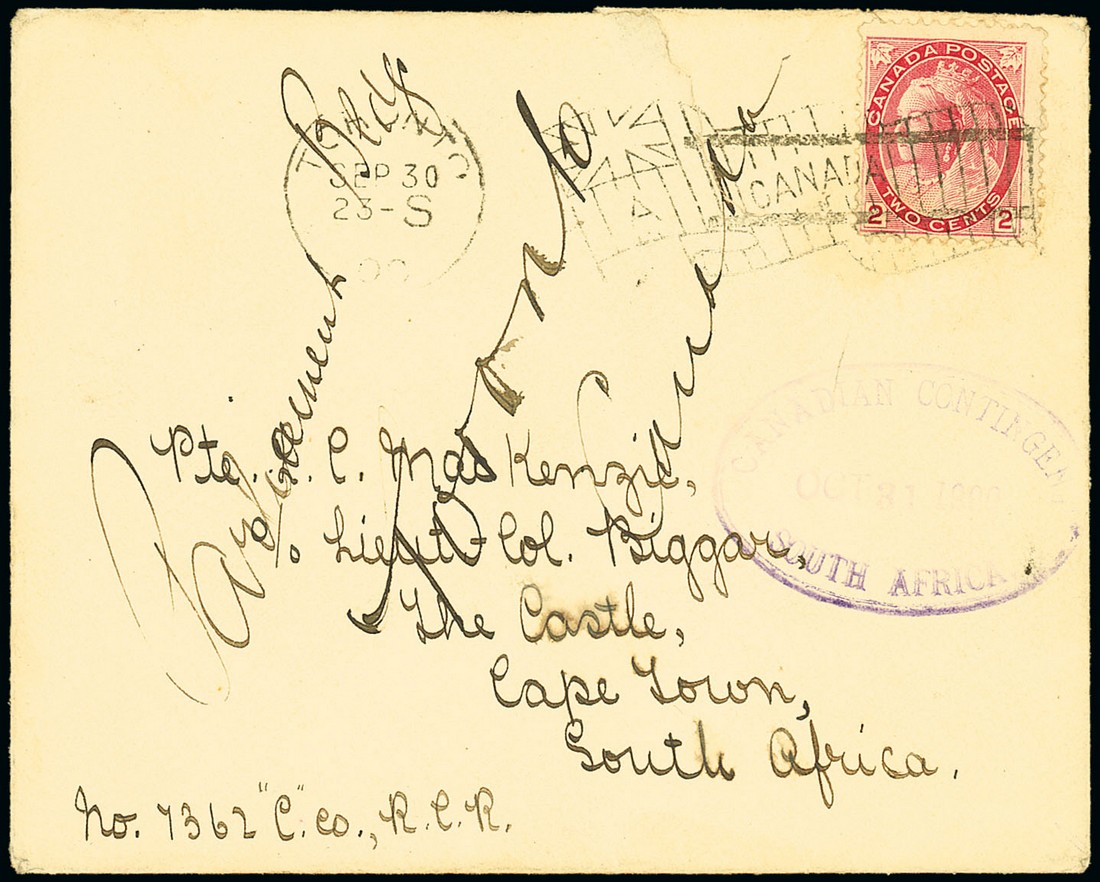 TORONTO
SEP 30
23-S
00
CANADA
CANADA POSTAGE
2 TWO CENTS 2
Parliament Bldgs
Toronto
Canada
CANADIAN CONTINGENT
OCT 31 1900
SOUTH AFRICA
Pte. C. MacKenzie,
c/o Lieut-Col. Biggar,
The Castle,
Cape Town,
South Africa.
No. 7362 "C." Co., R.C.R.